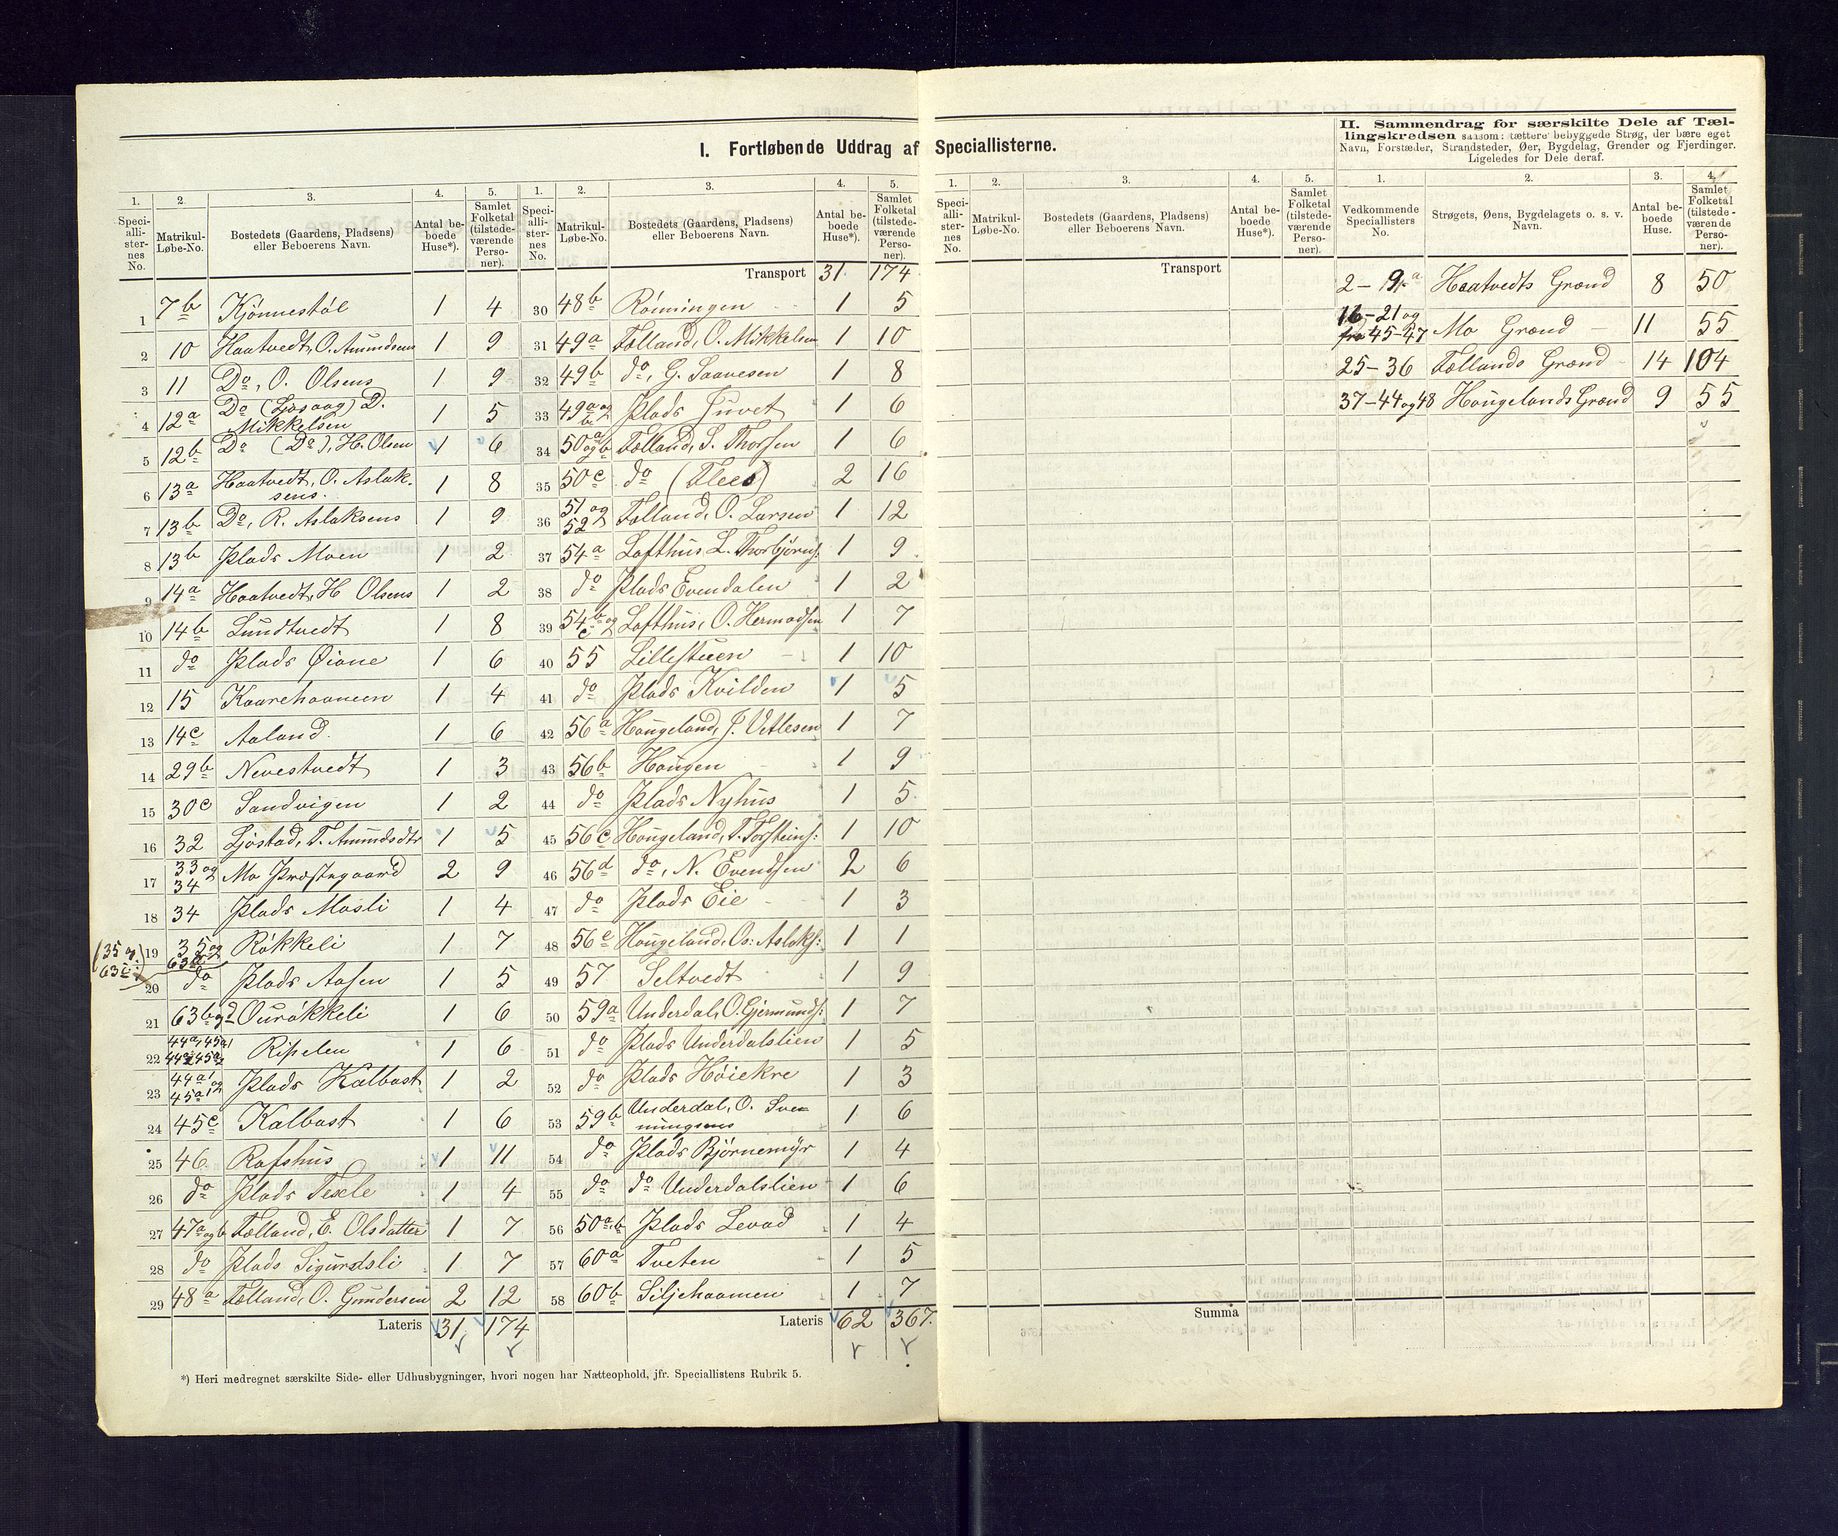 I. Fortløbende Uddrag af Speciallisterne.
II. Sammendrag for særskilte Dele af Tæl-
lingskredsen saasom: tættere bebyggede Strøg, der bære eget
Navn, Forstæder, Strandsteder, Øer, Bygdelag, Grender og Fjerdinger.
Ligeledes for Dele deraf.
1. 2. 3. 4. 5.
Speciallisternes No. Matrikul-Løbe-No. Bostedets (Gaardens, Pladsens) eller Beboerens Navn. Antal beboede Huse*). Samlet Folketal (tilstedeværende Personer).
1 7b Kjønnestøl 1 4
2 10 Haatvedt, O. Amundsens 1 9
3 11 Do, O. Olsens 1 9
4 12a Do (Ljosaag) D. Mikkelsen 1 5
5 12b Do (Do), H. Olsen 1 6
6 13a Haatvedt, O. Aslak-
sens. 1 8
7 13b Do, R. Aslaksens 1 9
8 13b Plads Moen 1 2
9 14a Haatvedt, H Olsens 1 2
10 14b Lundtvedt 1 8
11 do Plads Øiane 1 6
12 15 Kaarehaameen 1 4
13 14c Aaland. 1 6
14 29b Nevestvedt 1 3
15 30c Sandvigen 1 2
16 32 Ljøstad, T. Amundsdtr 1 5
17 33 og 34 Mo Præstegaard 2 9
18 34 Plads Mosli 1 4
(35 og 63c)
19 35 og 63c Røkkeli 1 7
20 do Plads Aasen 1 5
21 63b og d Ourøkkeli 1 6
22 Rispelen 1 6
23 44a1 og 45a12 Plads Kalbast 1 2
24 45c Kalbast 1 6
25 46. Rafshus 1 11
26 do Plads Texle 1 4
27 47a og b Fælland, E. Olsdatter 1 7
28 do Plads Sigurdsli 1 7
29 48a Fælland, O. Gundersen 2 12
Lateris 31. 174
1. 2. 3. 4. 5.
Speciallisternes No. Matrikul-Løbe-No. Bostedets (Gaardens, Pladsens) eller Beboerens Navn. Antal beboede Huse*). Samlet Folketal (tilstedeværende Personer).
Transport 31. 174
30 48b Rønningen 1 5
31 49a Fælland, O. Mikkelsen 1 10
32 49b do, G. Saavesen 1 8
33 49a og b Plads Juvet 1 6
34 50a og b Fælland, S. Thorsen 1 6
35 50c do 2 16
36 51 og 52 Fælland, O. Larsen 1 12
37 54a Lofthus L. Thorbjørns: 1 9
38 do Plads Evendalen 1 2
39 54b og c Lofthus, O. Hermodsen 1 7
40 55 Lillestuen 1 10
41 do Plads Kvilden 1 5
42 56a Hougeland, J. Vetlesen 1 7
43 56b Hougen 1 9
44 do Plads Nyhus 1 5
45 56c Hougeland, T. Torsteins: 1 10
46 56d do, N. Evendsen 2 6
47 do Plads Eie 1 3
48 56e Hougeland, Os: Aslaks: 1 1
49 57 Seltvedt 1 9
50 59a Underdal, O. Gjermunds: 1 7
51 do Plads Underdalslien 1 5
52 do Plads Høiekre 1 3
53 59b Underdal, O. Sven-
nungsens 1 6
54 do Plads Bjørnemyr 1 4
55 do do Underdalslien 1 6
56 50a, b Plads Levad 1 4
57 60a Tveten 1 5
58 60b Siljehaamen 1 7
Lateris 62 367.
*) Heri medregnet særskilte Side- eller Udhusbygninger, hvori nogen har Natteophold, jfr. Speciallistens Rubrik 5.
1. 2. 3. 4. 5.
Speciallisternes No. Matrikul-Løbe-No. Bostedets (Gaardens, Pladsens) eller Beboerens Navn. Antal beboede Huse*). Samlet Folketal (tilstedeværende Personer).
Transport
Summa
1. 2. 3. 4.
Vedkommende Speciallisters No. Strøgets, Øens, Bygdelagets o. s. v. Navn. Antal beboede Huse. Samlet Folketal (tilstedeværende Personer).
2-9a Haatvedts Grænd 8 50
16-21 og fra 45-47 Mo Grænd 11 55
25-36 Fællands Grænd 14 104
37-44 og 48 Hougelands Grænd 9 55